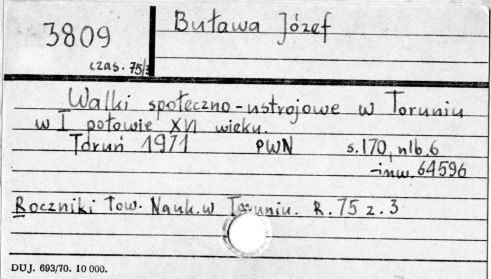 3809
czas. 75/3
Buława Józef
Walki społeczno-ustrojowe w Toruniu
w I połowie XVI wieku.
Toruń 1971 PWN s.170, nlb.6
inw. 64596
Roczniki Tow. Nauk. w Toruniu. R. 75 z. 3
DUJ. 693/70. 10 000.